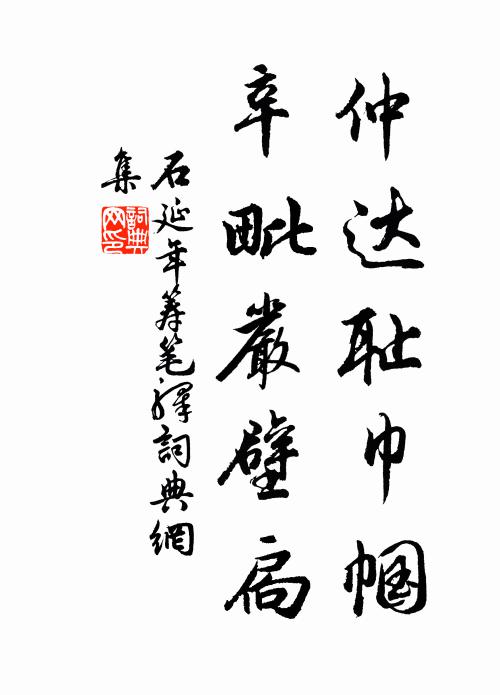 仲达耻巾帼
辛毗严壁扃
石延年筹笔驿词典網
集
詞典
网印